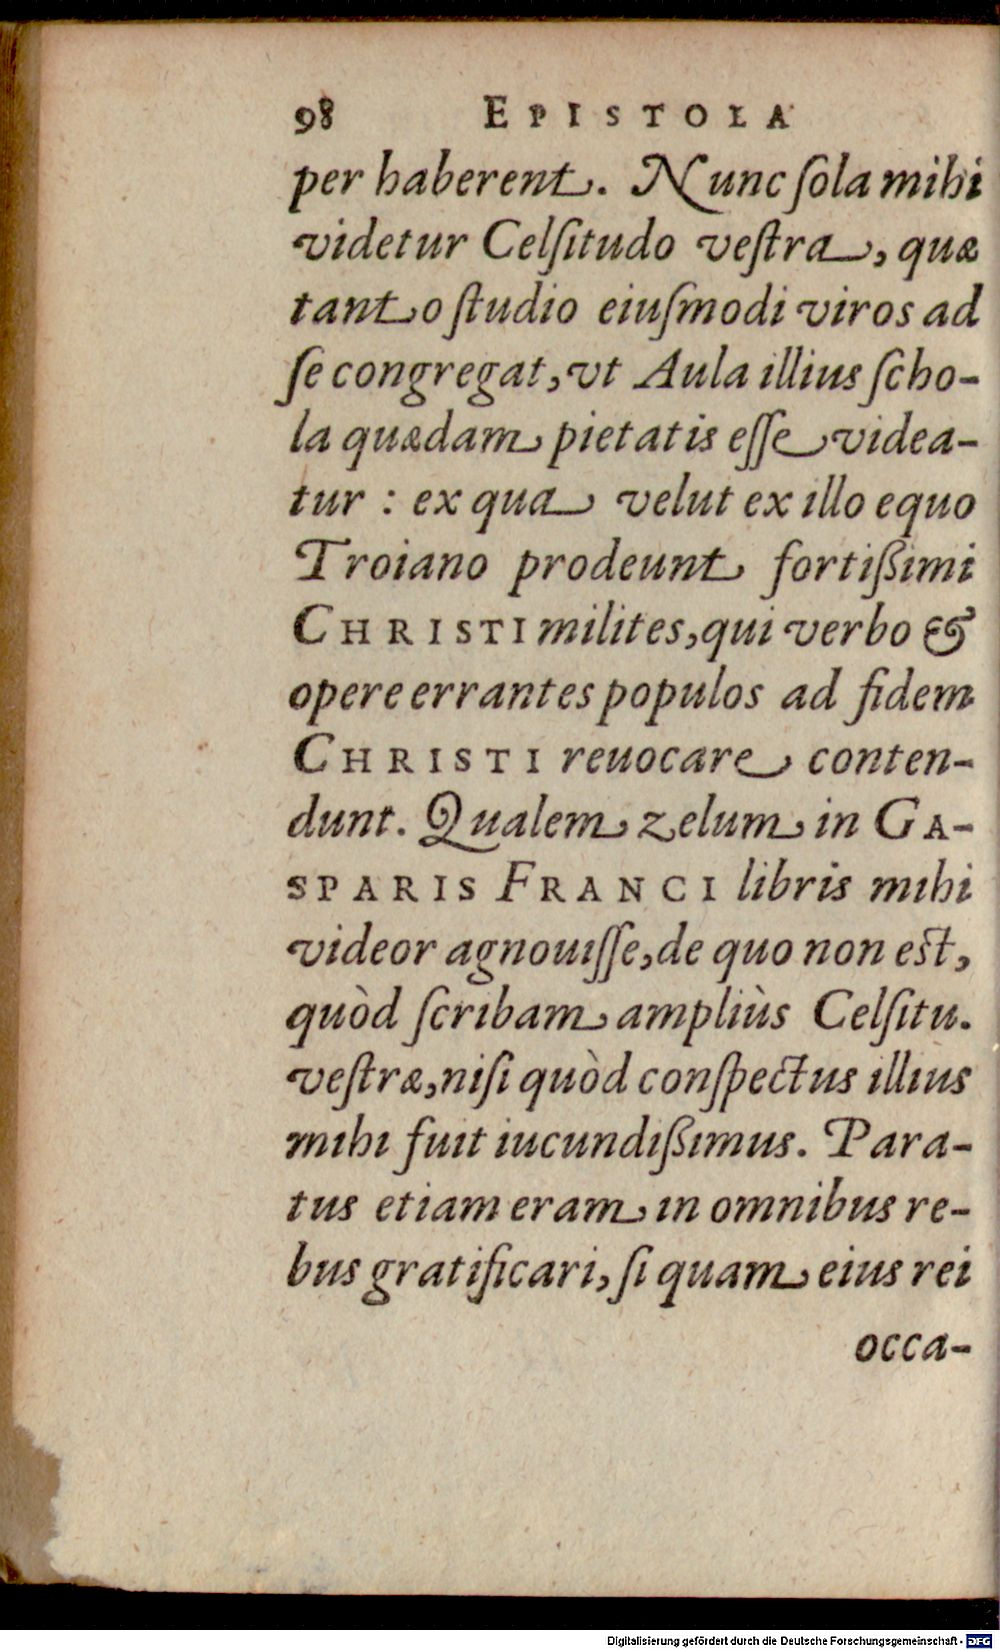 98 EPISTOLA
per haberent. Nunc ſola mihi
videtur Celſitudo veſtra, quæ
tanto ſtudio eiuſmodi viros ad
ſe congregat, vt Aula illius ſcho-
la quædam pietatis eſſe videa-
tur : ex qua velut ex illo equo
Troiano prodeunt fortißimi
CHRISTI milites, qui verbo &
opere errantes populos ad fidem
CHRISTI reuocare conten-
dunt. Qualem zelum in GA-
SPARIS FRANCI libris mihi
videor agnouiſſe, de quo non est,
quòd ſcribam ampliùs Celſitu.
veſtræ, niſi quòd conſpectus illius
mihi fuit iucundißimus. Para-
tus etiam eram in omnibus re-
bus gratificari, ſi quam eius rei
occa-
Digitalisierung gefördert durch die Deutsche Forschungsgemeinschaft - DFG